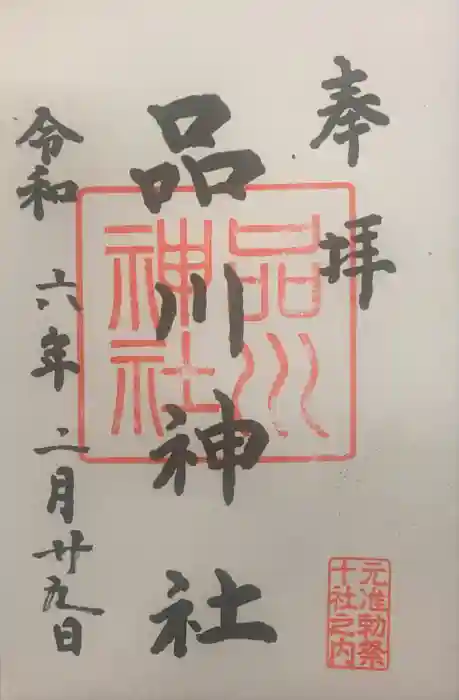 奉拝
品川神社
品川
神社
令和 六年 二月廿九日
元准勅祭
十社之内